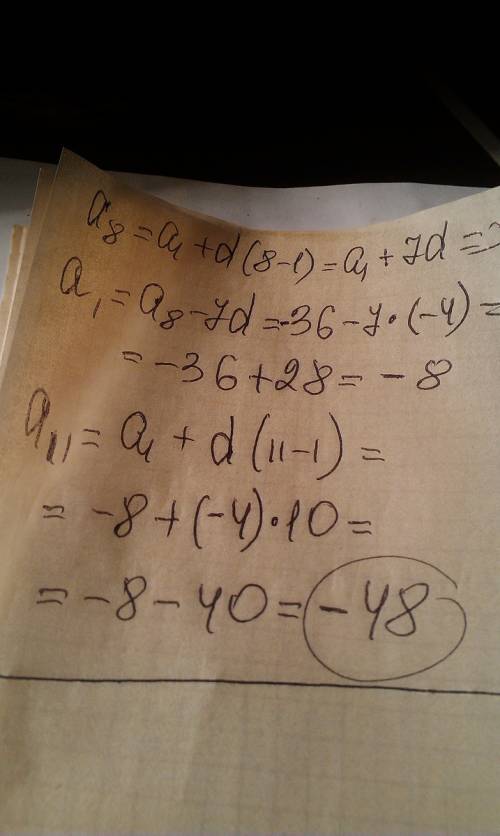 a₈ = a₁ + d(8-1) = a₁ + 7d =>
a₁ = a₈ - 7d = -36 - 7·(-4) =
= -36 + 28 = -8
a₁₁ = a₁ + d(11-1) =
= -8 + (-4)·10 =
= -8 - 40 = -48